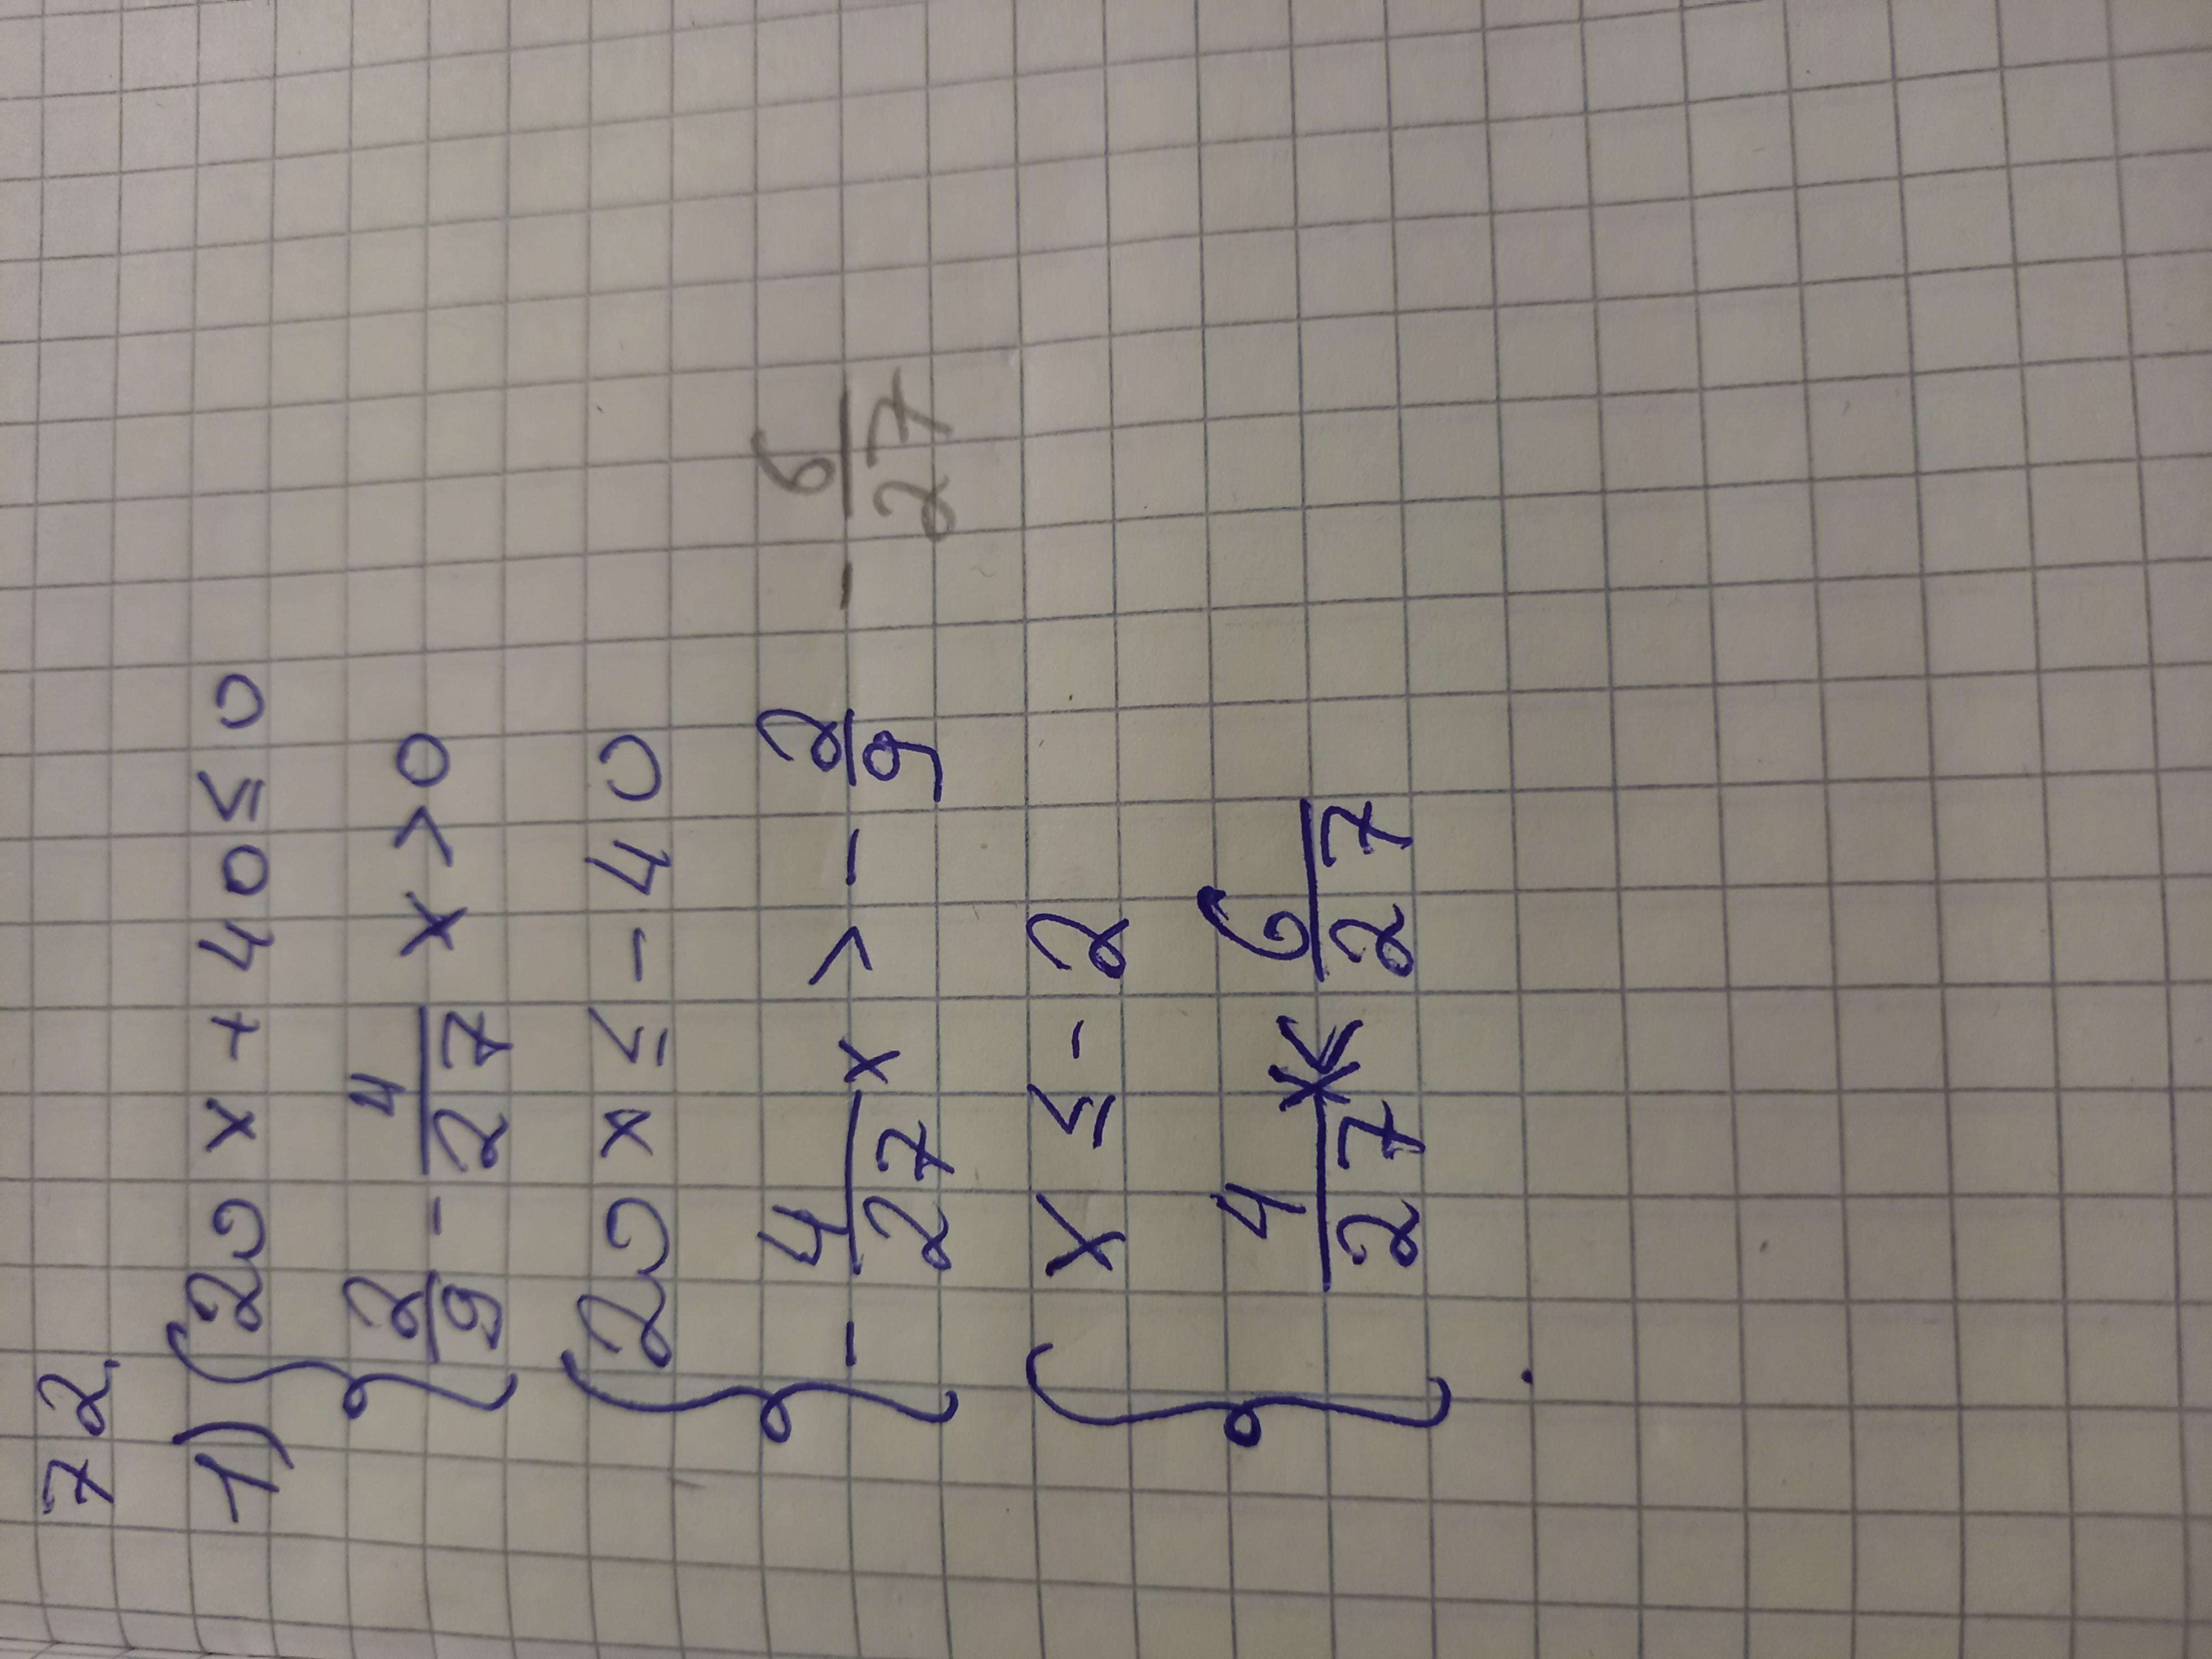 72
1) { 20x + 40 ≤ 0
2/9 - 4/27 x > 0
{ 20x ≤ - 40
- 4/27 x > - 2/9 - 6/27
{ x ≤ - 2
4/27 x < 6/27